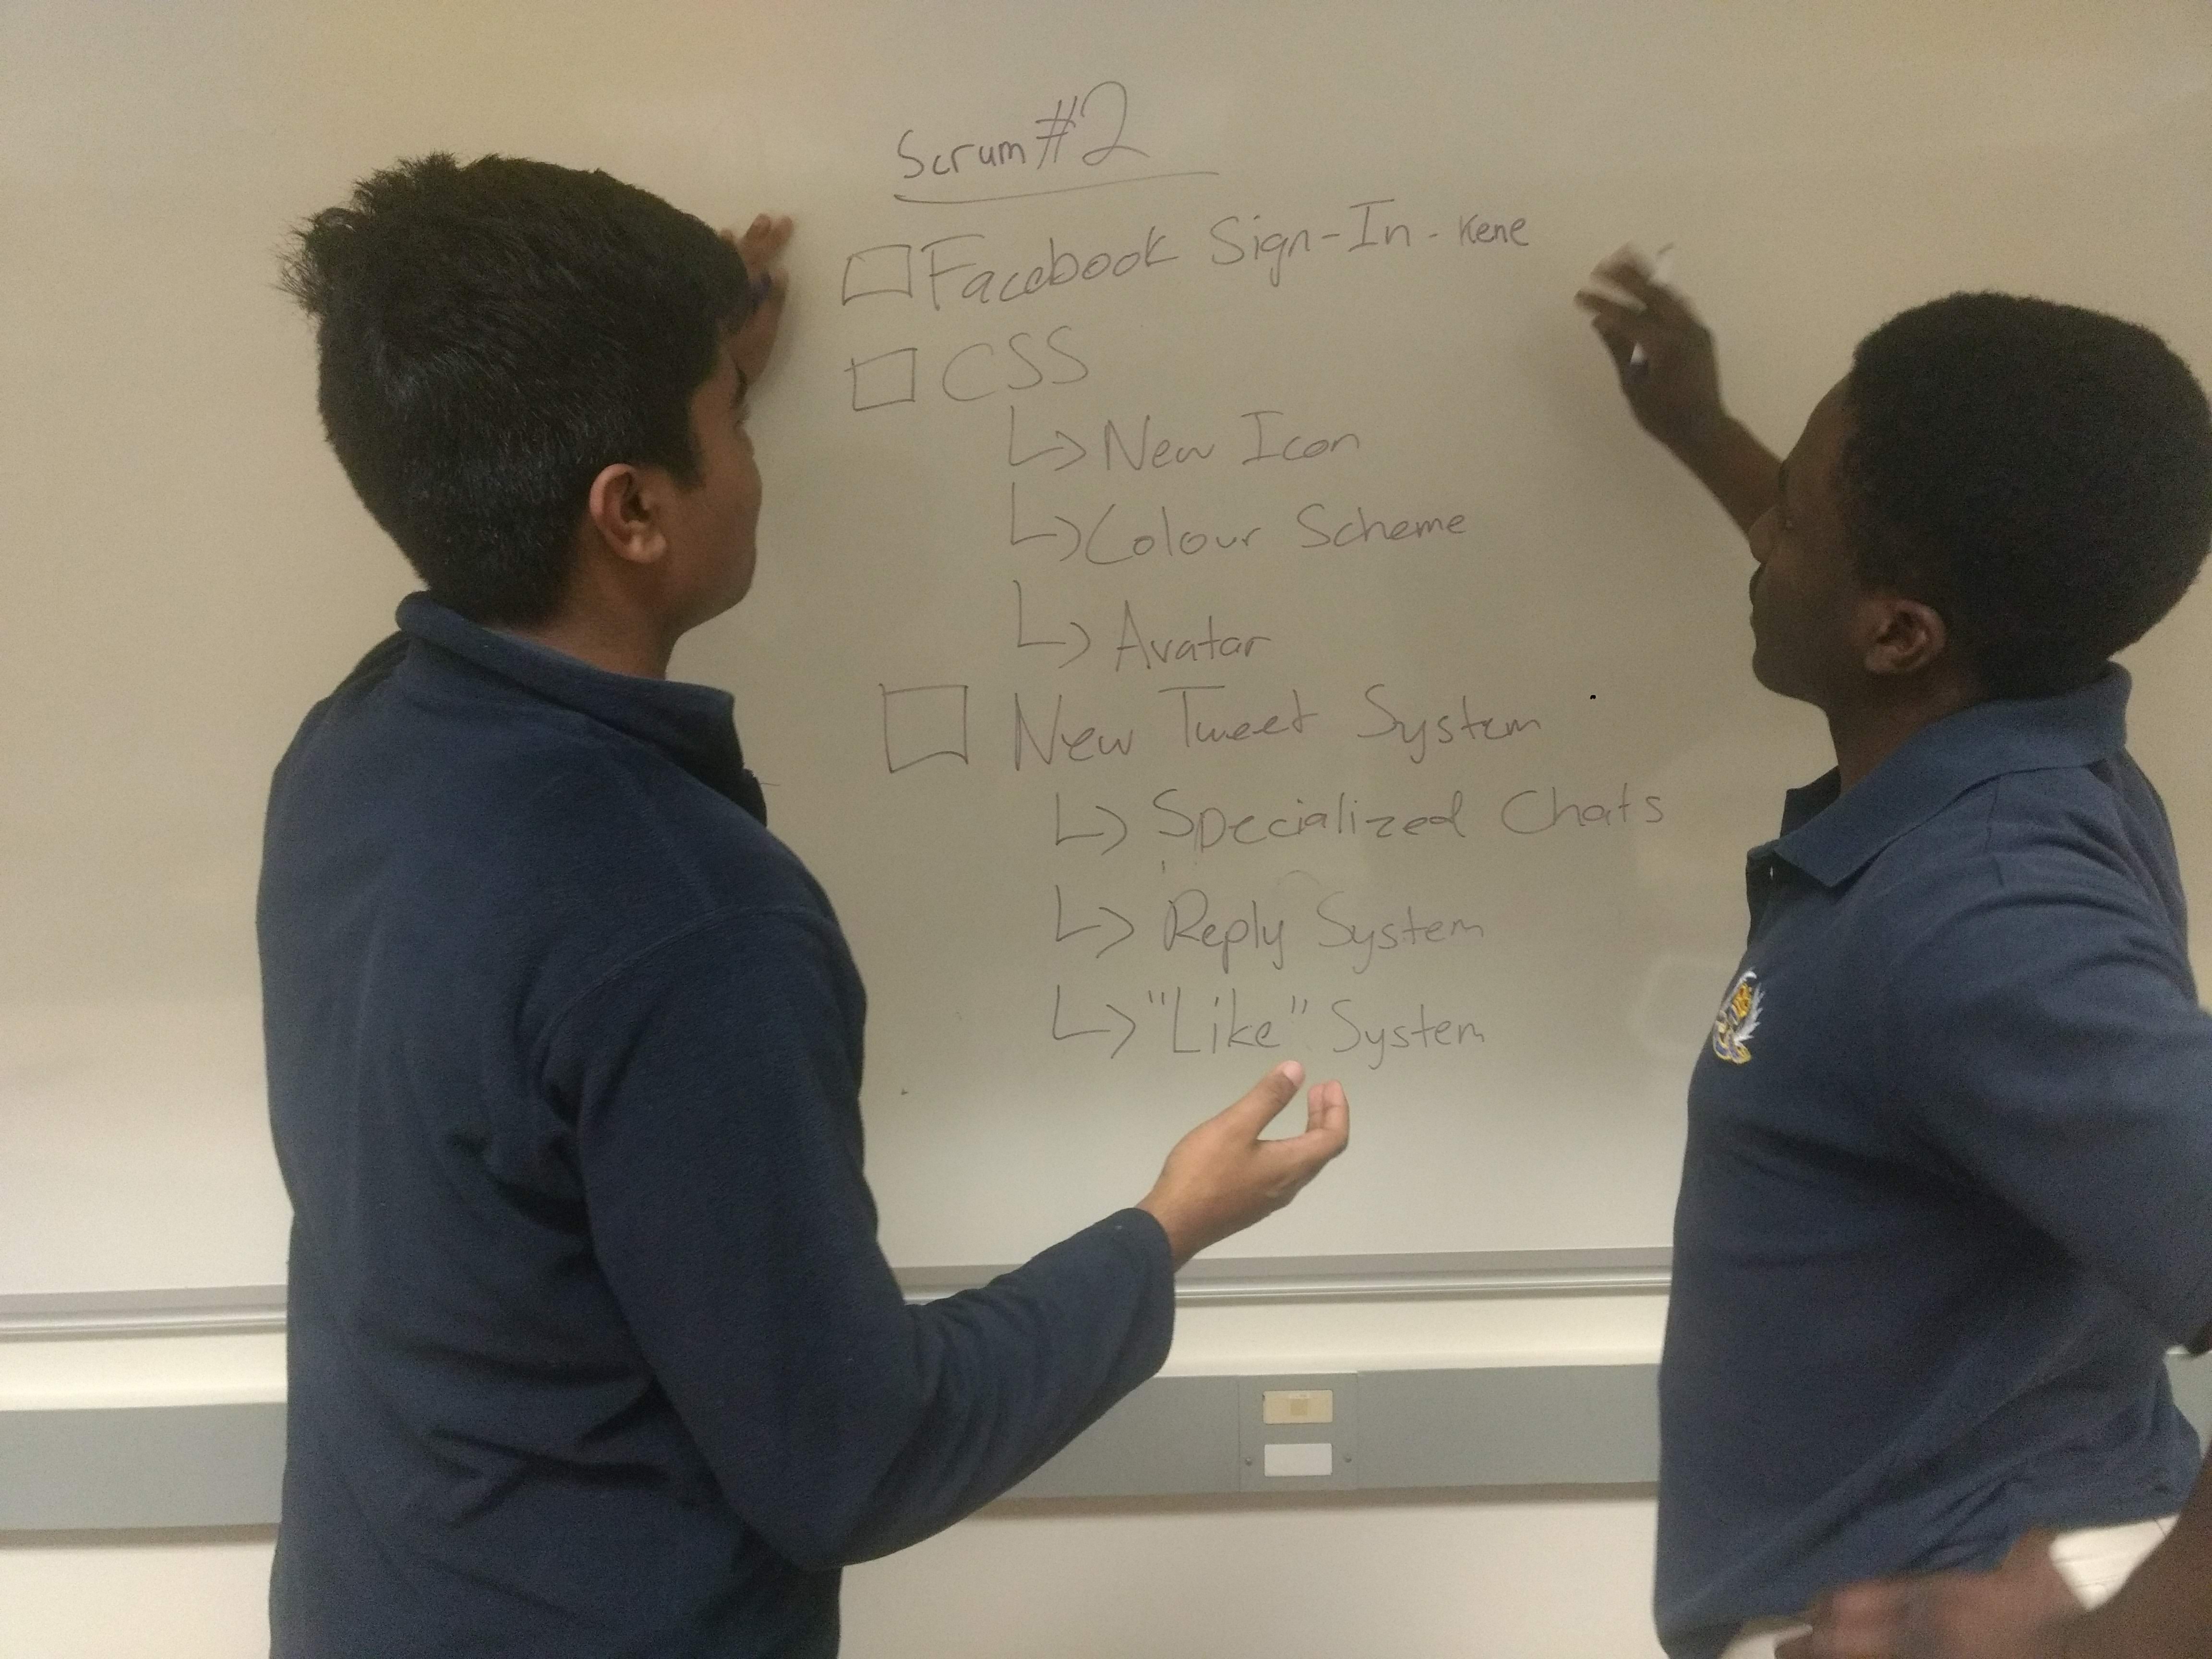 Scrum #2
Facebook Sign-In - Kene
CSS
New Icon
Colour Scheme
Avatar
New Tweet System
Specialized Chats
Reply System
"Like" System